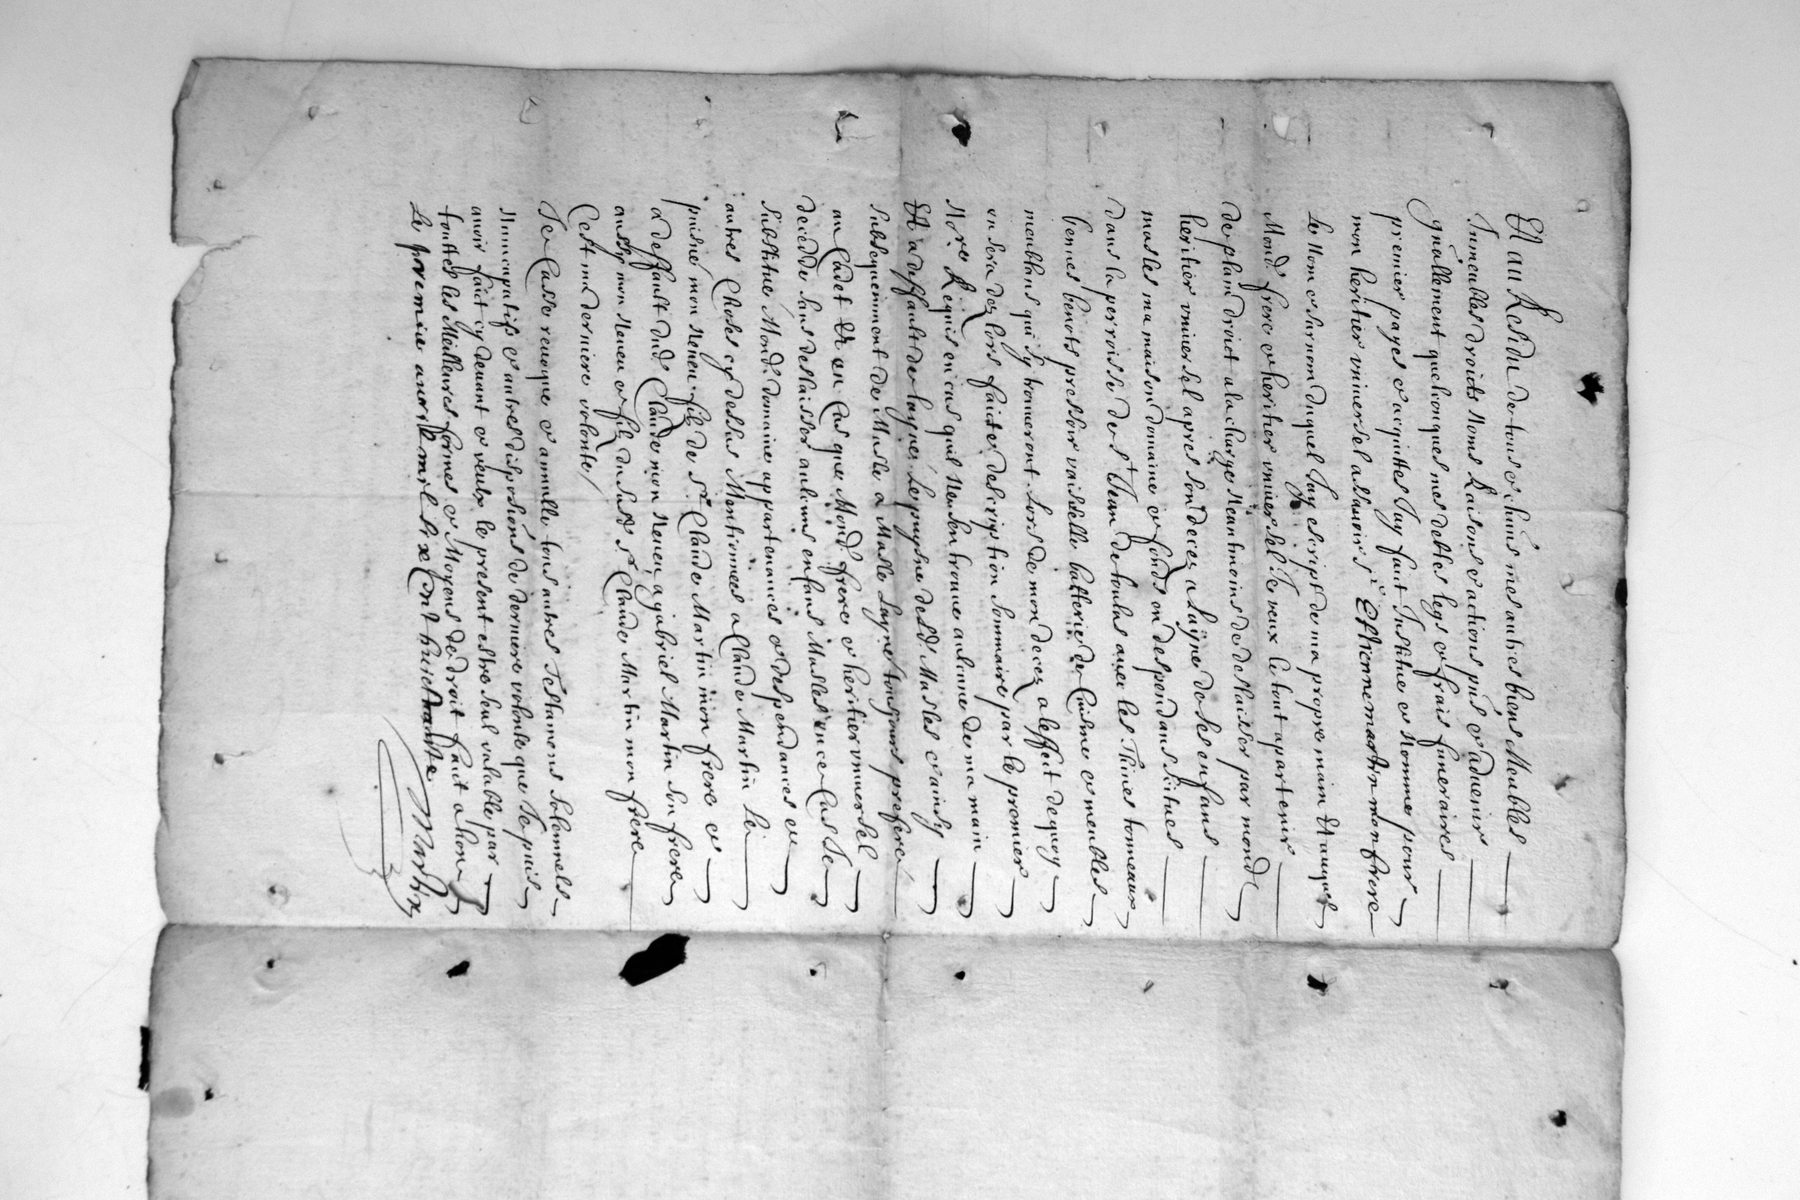 Et au Residu de tous et chuns mes autres biens Meubles
Inmeubles droicts Noms Raisons et actions pnts et aduenir
gnallement quelconques mes debtes legs et frais funeraires
premier payes et acquittes Jay faict Institue et Nomme pour
mon heritier vniuersel assauoir sr Estienne martin mon frere
Le Nom et surnom duquel Jay escript de ma propre main Et auquel
Mond. frere et heritier vniuersel Je veux le tout apartenir
de plain droict a la charge Neantmoins de delaisser par mond.
heritier vniuersel apres son deces a laisne de ses enfans
masles ma maison domaine et fonds en despendans situes
dans la perroisse de st Jean de toulas auec les Thines tonneaux
bennes benots pressoir vaisselle batterie de Cuisine et meubles
meublans qui sy trouueront Lors de mon deces a leffect dequoy
en sera des lors faicte description sommaire par le premier
Nore Requis en cas quil Nen sen trouue aulcune de ma main
Et a deffault de laisne Le puysne desd. Masles et ainsy
subsequemment de Masle a Masle Layne tousjours prefere
au Cadet Et en Cas que Mond. frere et heritier vniuersel
decedde sans delaisser aulcuns enfans Masles en ce Cas Je
substitue Mond. domaine appartenances et despendances et
autres Choses cy dessus Mentionnees a Claude Martin Le
puisne mon Neueu filz de sr Claude Martin mon frere et
a deffault dud. Claude mon Neueu a gabriel Martin son frere
aussy mon Neueu et filz dusd. sr Claude Martin mon frere
Cest ma derniere volonte /
Je Casse reuoque et annulle tous autres Testamens solemnels
Nuncupatifs et autres dispositions de derniere volonte que Je puis
auoir faict cy deuant et veulx le present estre seul valable par
touttes les Meilleures formes et Moyens de droit faict a lion
Le premier auril mil six Cent huictante Martin